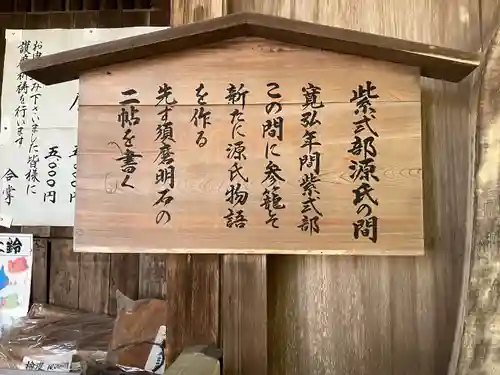 紫式部源氏の間
寛弘年間紫式部
この間に参籠そ
新たに源氏物語
を作る
先ず須磨明石の
二帖を書く
み下さいました皆様に
護摩祈祷を行います
五、000円
五、000円
合掌
鈴